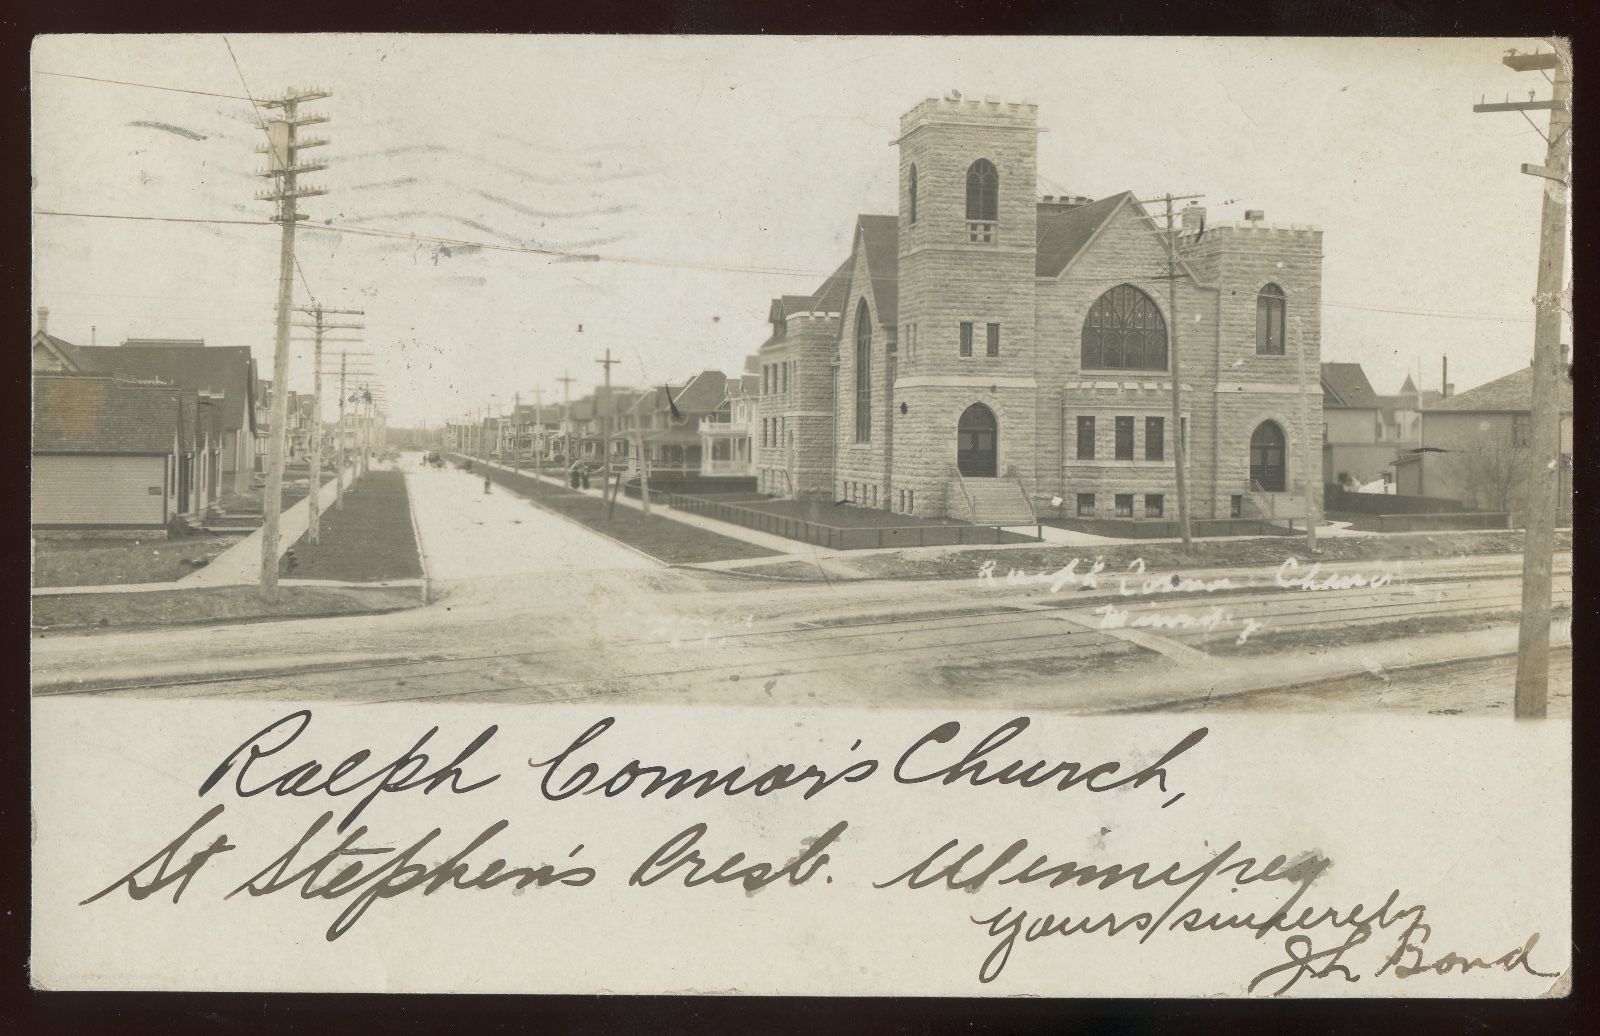 Ralph Connor Church
Winnipeg
Ralph Connor's Church,
St Stephen's Presb. Winnipeg
Yours sincerely
J L Bond